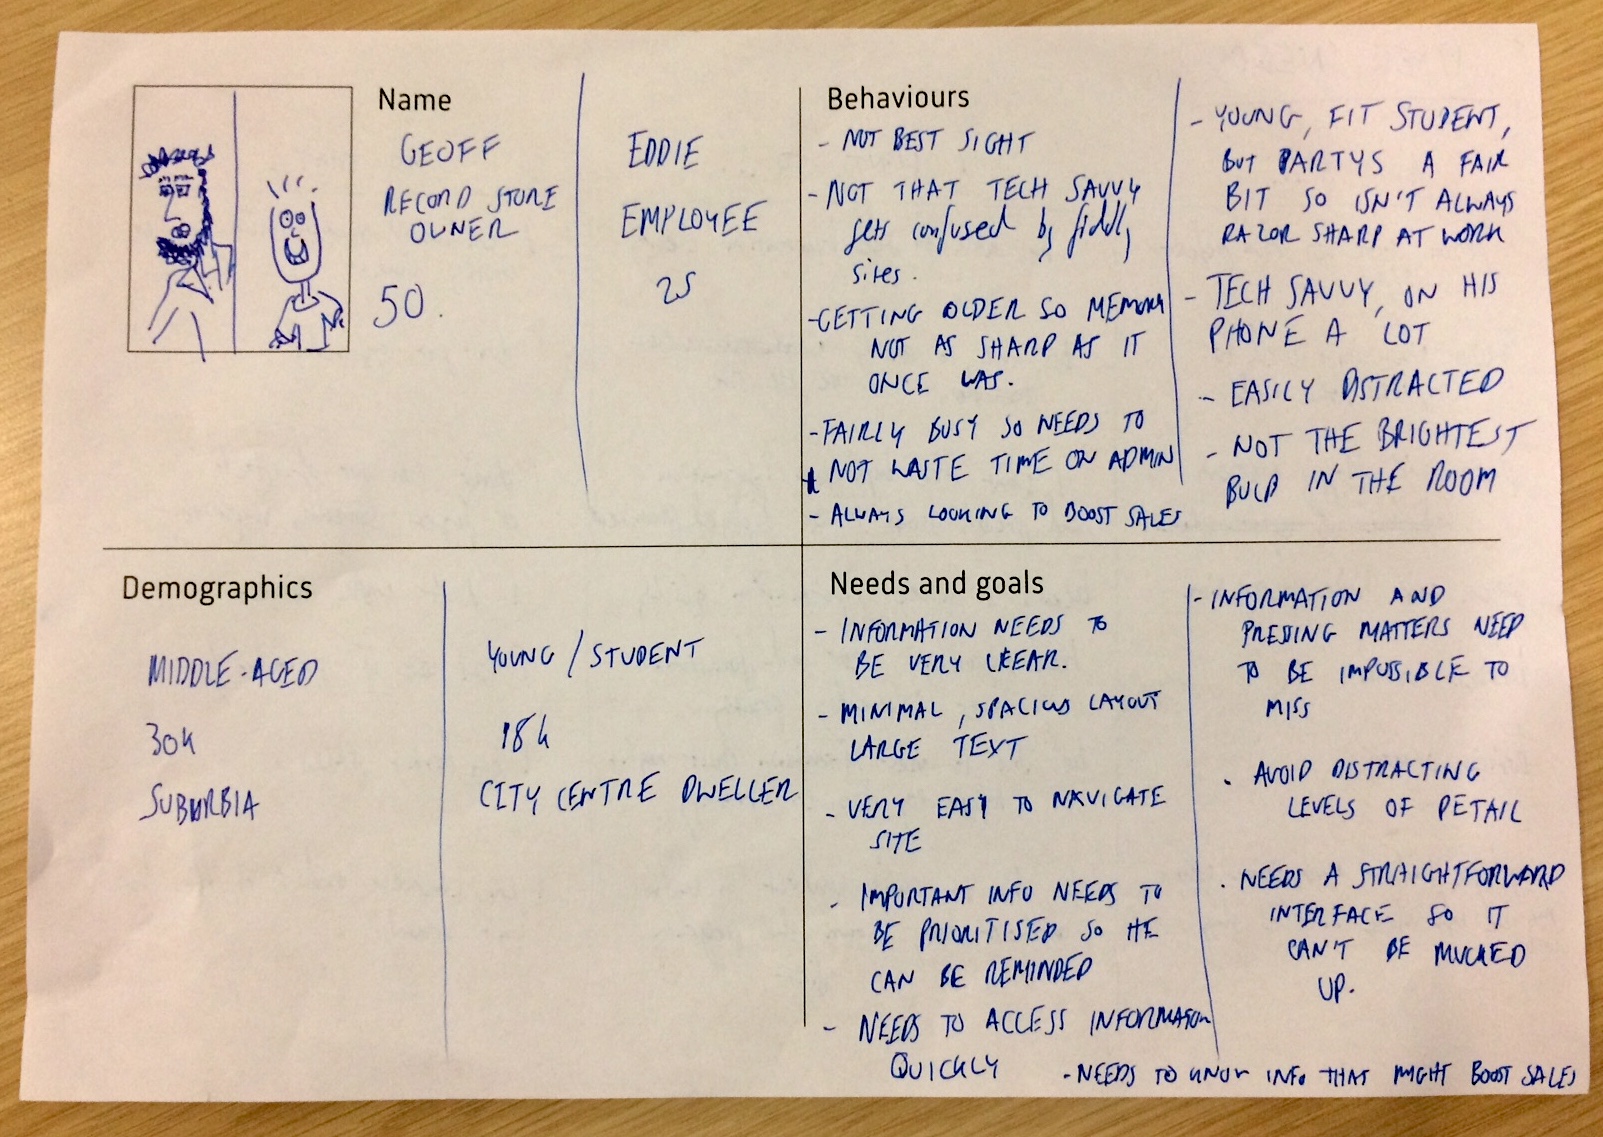 Name
GEOFF
RECORD STORE
OWNER
50.
EDDIE
EMPLOYEE
25
Behaviours
- NOT BEST SIGHT
- NOT THAT TECH SAVVY
gets confused by fiddly
sites.
- GETTING OLDER SO MEMORY
NOT AS SHARP AS IT
ONCE WAS.
- FAIRLY BUSY SO NEEDS TO
NOT WASTE TIME ON ADMIN
- ALWAYS LOOKING TO BOOST SALES
- YOUNG, FIT STUDENT,
BUT PARTYS A FAIR
BIT SO ISN'T ALWAYS
RAZOR SHARP AT WORK
- TECH SAVVY, ON HIS
PHONE A LOT
- EASILY DISTRACTED
- NOT THE BRIGHTEST
BULB IN THE ROOM
Demographics
MIDDLE-AGED
30K
SUBURBIA
YOUNG / STUDENT
18K
CITY CENTRE DWELLER
Needs and goals
- INFORMATION NEEDS TO
BE VERY CLEAR.
- MINIMAL, SPACIOUS LAYOUT
LARGE TEXT
- VERY EASY TO NAVIGATE
SITE
- IMPORTANT INFO NEEDS TO
BE PRIORITISED SO HE
CAN BE REMINDED
- NEEDS TO ACCESS INFORMATION
QUICKLY
- INFORMATION AND
PRESSING MATTERS NEED
TO BE IMPOSSIBLE TO
MISS
- AVOID DISTRACTING
LEVELS OF DETAIL
- NEEDS A STRAIGHTFORWARD
INTERFACE SO IT
CAN'T BE MUCKED
UP.
- NEEDS TO KNOW INFO THAT MIGHT BOOST SALES